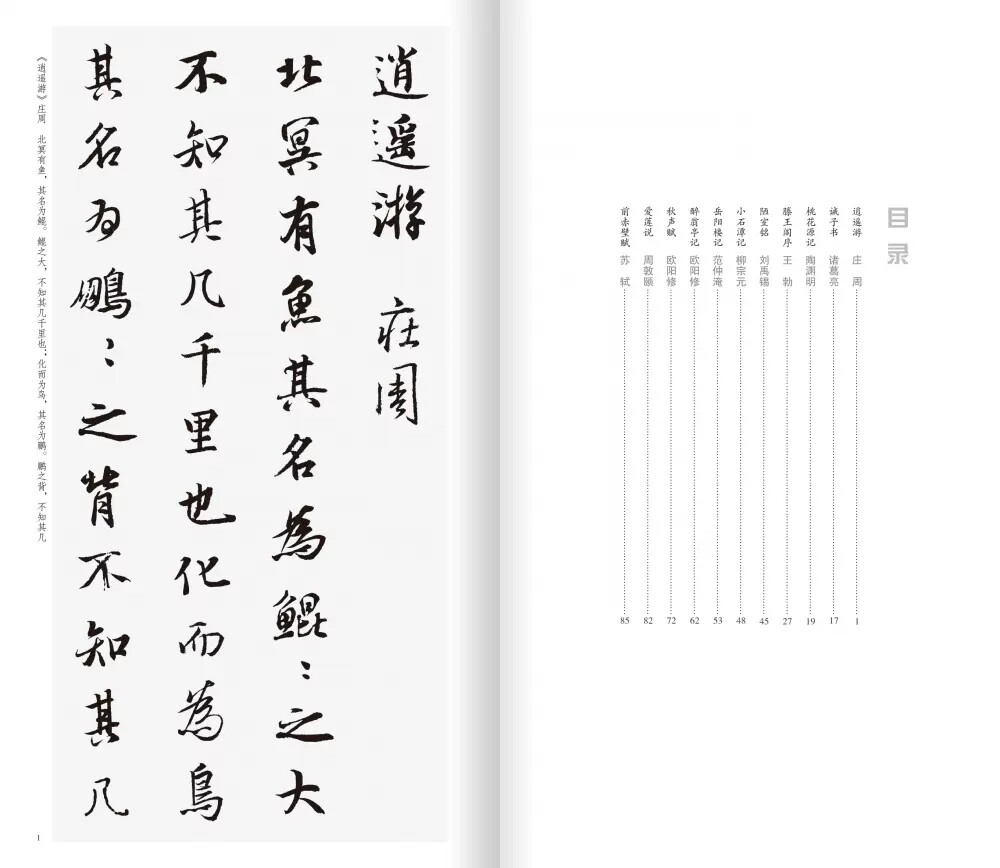 目录
逍遥游 庄周 1
诫子书 诸葛亮 17
桃花源记 陶渊明 19
滕王阁序 王勃 27
陋室铭 刘禹锡 45
小石潭记 柳宗元 48
岳阳楼记 范仲淹 53
醉翁亭记 欧阳修 62
秋声赋 欧阳修 72
爱莲说 周敦颐 82
前赤壁赋 苏轼 85
逍遥游 莊周
北冥有魚其名為鯤〻之大
不知其几千里也化而為鳥
其名为鵬〻之背不知其几
《逍遥游》庄周 北冥有鱼，其名为鲲。鲲之大，不知其几千里也；化而为鸟，其名为鹏。鹏之背，不知其几
1